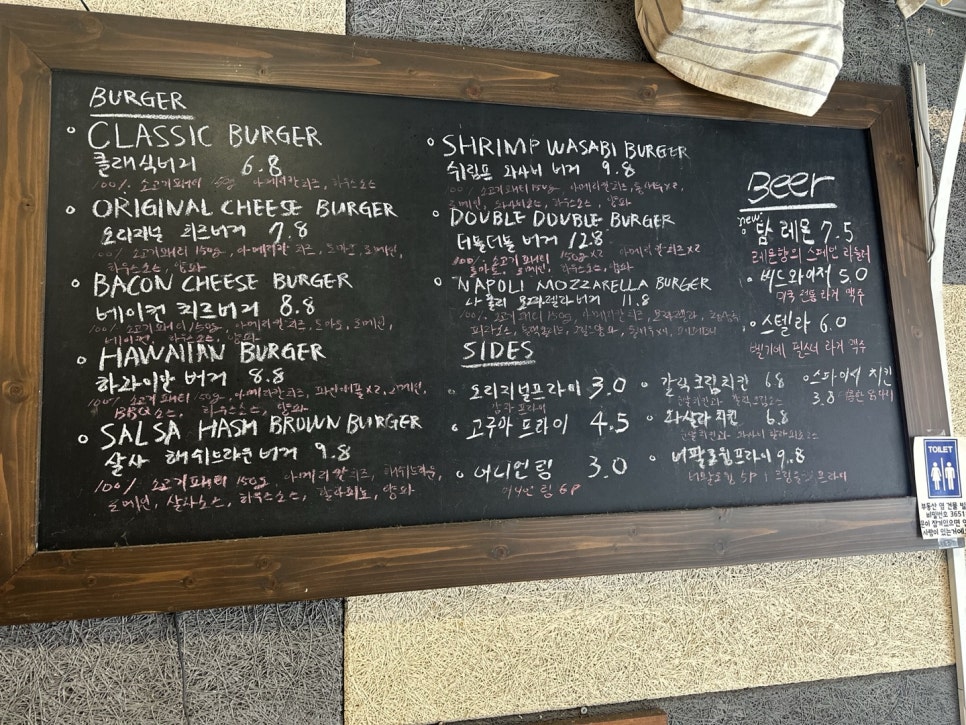 BURGER
CLASSIC BURGER
클래식버거 6.8
100% 소고기패티 150g, 아메리칸치즈, 하우스소스
ORIGINAL CHEESE BURGER
오리지널 치즈버거 7.8
100% 소고기패티 150g, 아메리칸 치즈, 토마토, 로메인,
하우스소스, 양파
BACON CHEESE BURGER
베이컨 치즈버거 8.8
100% 소고기패티 150g, 아메리칸 치즈, 토마토, 로메인,
베이컨, 하우스소스, 양파
HAWAIIAN BURGER
하와이안 버거 8.8
100% 소고기패티 150g, 아메리칸치즈, 파인애플x2, 로메인,
BBQ소스, 하우스소스, 양파
SALSA HASH BROWN BURGER
살사 해쉬브라운버거 9.8
100% 소고기패티 150g, 아메리칸치즈, 해쉬브라운,
로메인, 살사소스, 하우스소스, 양파
SHRIMP WASABI BURGER
쉬림프 와사비 버거 9.8
100% 소고기패티 150g, 아메리칸치즈, x2,
로메인, 와사비소스, 하우스소스, 양파
DOUBLE DOUBLE BURGER
더블더블 버거 12.8
100% 소고기패티 150gx2 아메리칸치즈x2
토마토, 로메인, 하우스소스, 양파
NAPOLI MOZZARELLA BURGER
나폴리 모짜렐라버거 11.8
100% 소고기패티 150g, 아메리칸치즈, 모짜렐라,
SIDES
오리지널프라이 3.0
감자 프라이
고구마 프라이 4.5
어니언링 3.0
어니언링 6P
갈릭크림치킨 6.8
와살라 치킨 6.8
버팔로윙프라이 9.8
버팔로윙 5P
스파이시 치킨
3.8
Beer
new
탐 레몬 7.5
레몬향의 스페인 라들러
버드와이저 5.0
미국 전통 라거 맥주
스텔라 6.0
벨기에 필스너 라거 맥주
TOILET
부동산 옆 건물
비밀번호 3651
문이 잠겨있으면 안
사람이 있는거예요